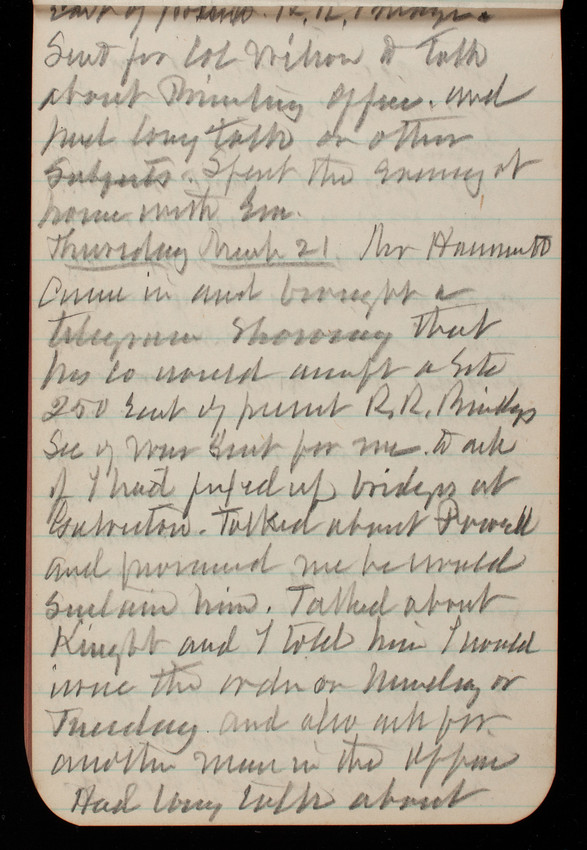 East of present R.R. Bridge.
Sent for Col Wilson to talk
about Printing Office. and
had long talk on other
Subjects. Spent the Evening at
home with Em.
Thursday March 21 Mr
Came in and brought a
telegram Showing that
his Co would accept a Site
250 East of present R.R. Bridge
Sec of War Sent for me. to ask
if I had fixed up bridge at
Galveston. Talked about Powell
and promised me he would
Sustain him. Talked about
Knight and I told him I would
issue the order on Monday or
Tuesday and also ask for
another man in the office
Had long talk about